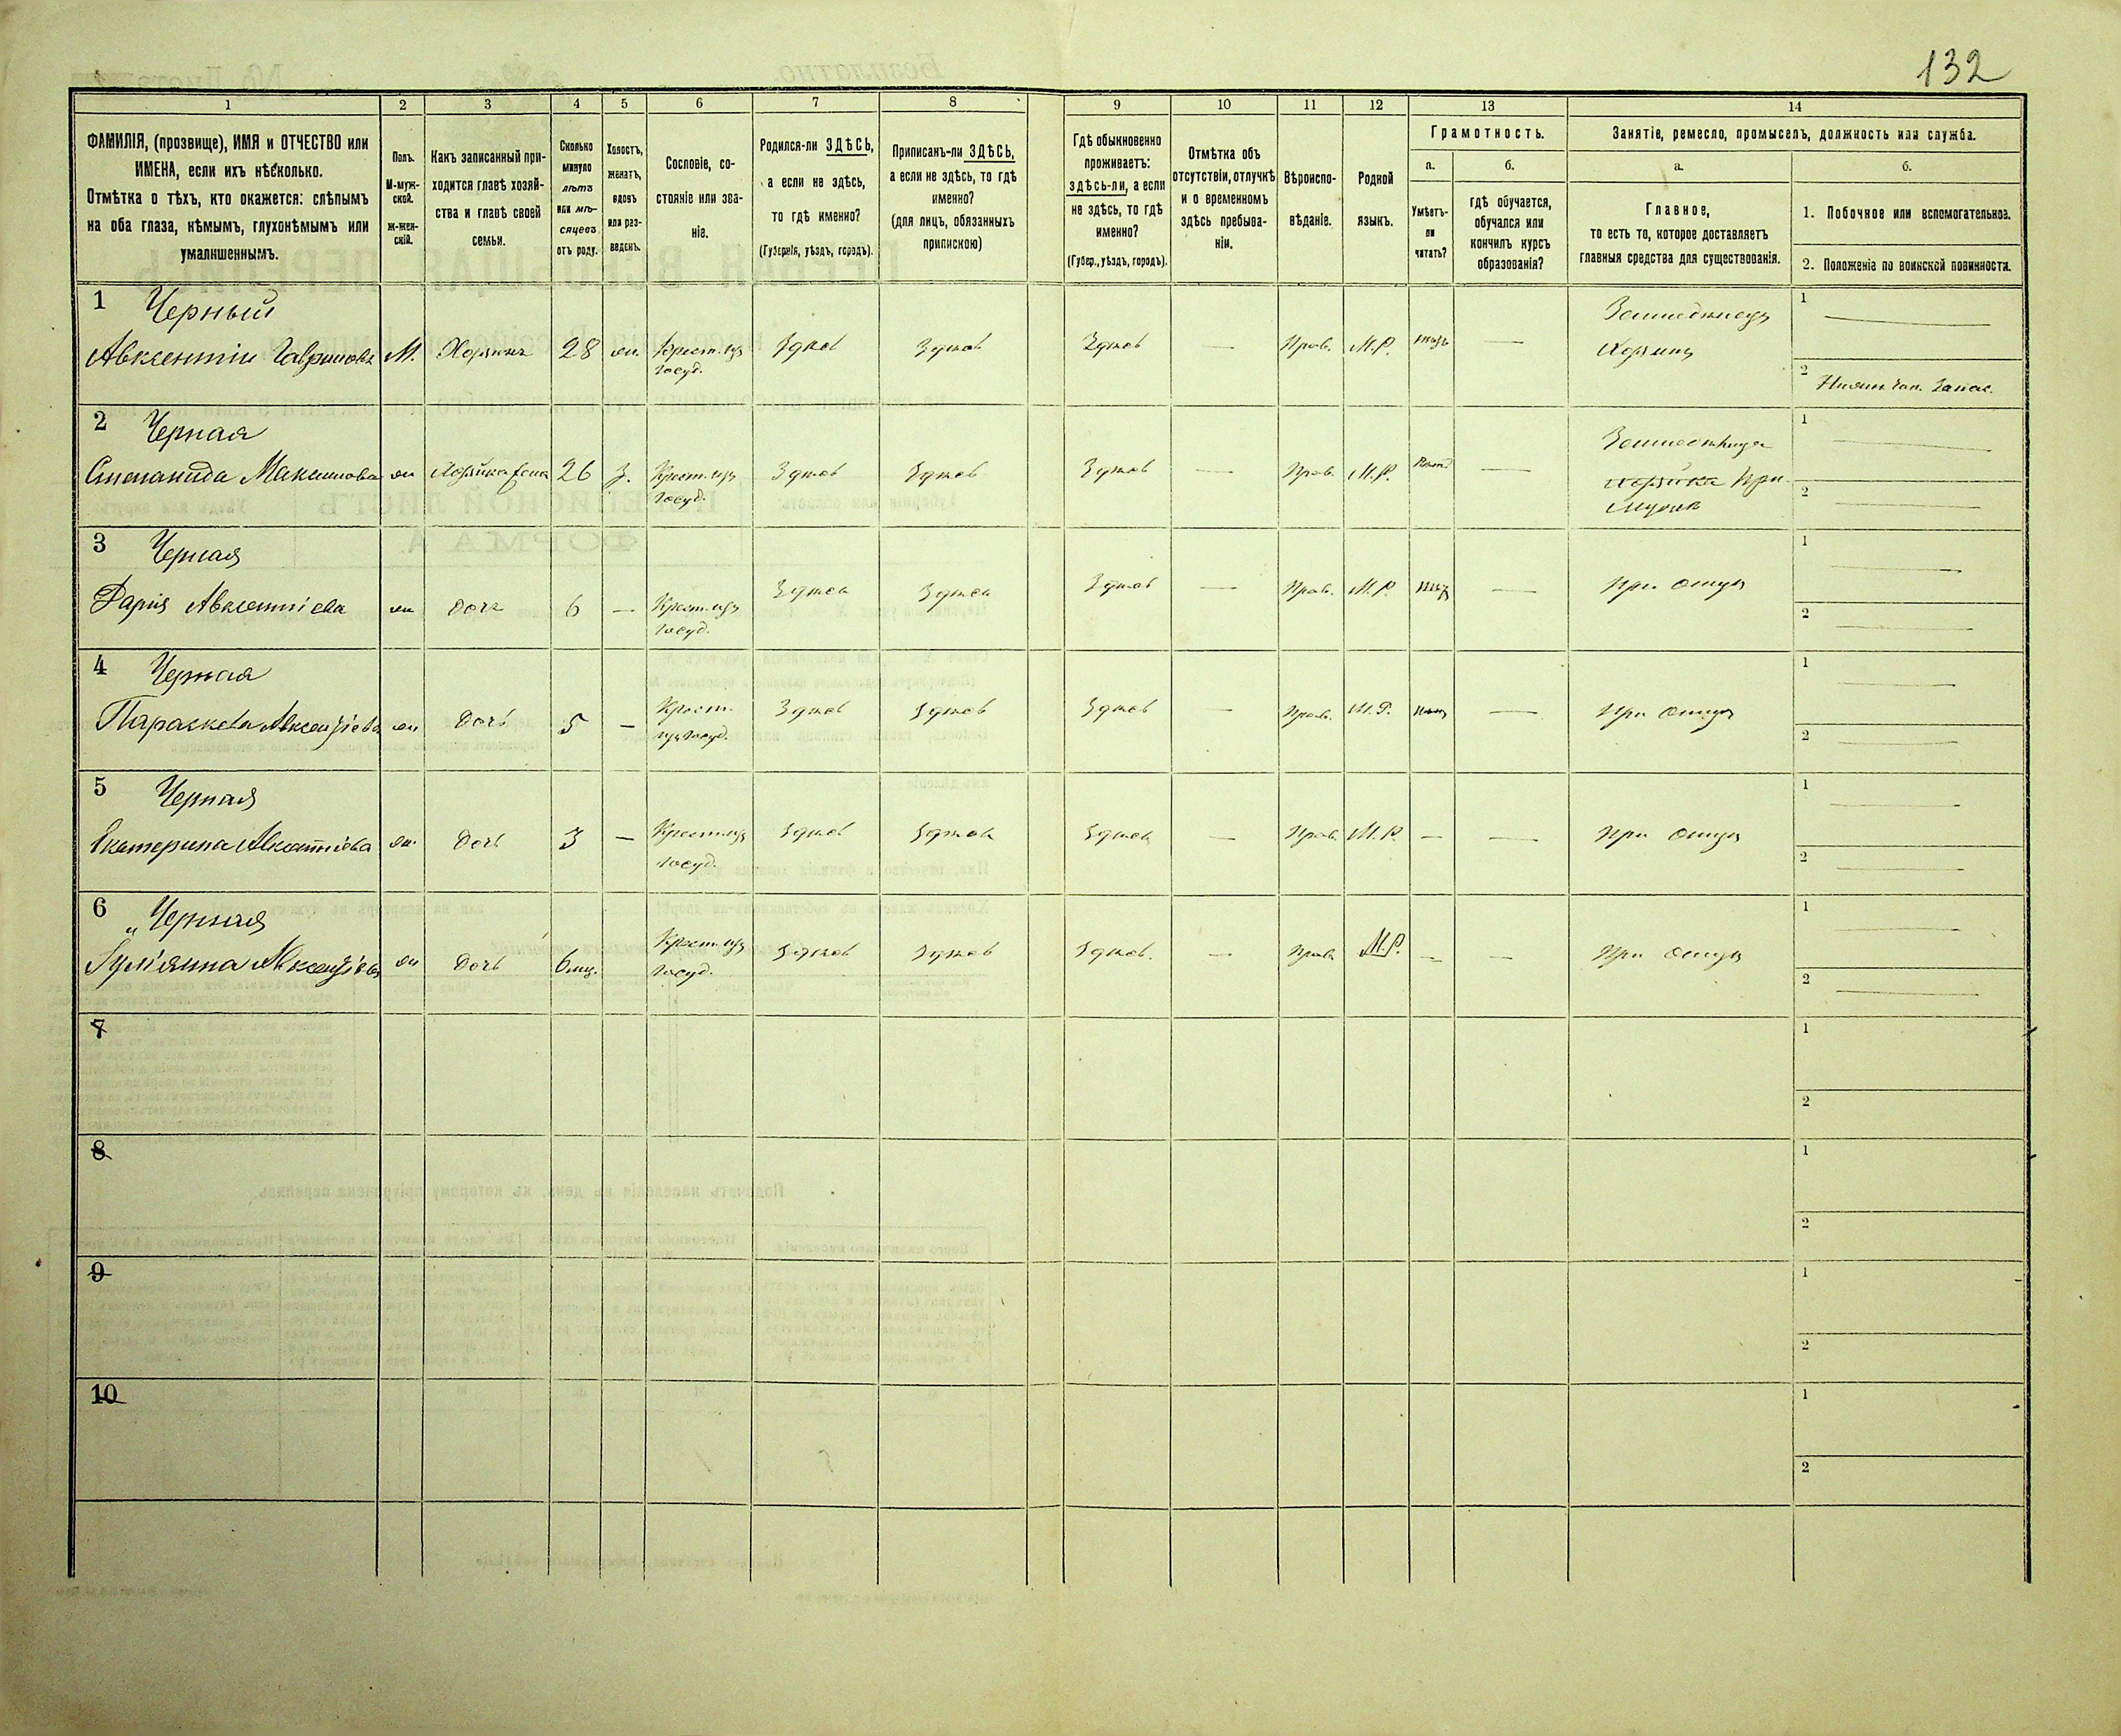 132
1 2 3 4 5 6 7 8 9 10 11 12 13 14
ФАМИЛІЯ, (прозвище), ИМЯ и ОТЧЕСТВО или
ИМЕНА, если ихъ нѣсколько.
Отмѣтка о тѣхъ, кто окажется: слѣпымъ
на оба глаза, нѣмымъ, глухонѣмымъ или
умалишеннымъ.
Полъ.
М-муж-
ской.
ж-жен-
скій.
Какъ записанный при-
ходится главѣ хозяй-
ства и главѣ своей
семьи.
Сколько
минуло
лѣтъ
или мѣ-
сяцевъ
отъ роду.
Холостъ,
женатъ,
вдовъ
или раз-
веденъ.
Сословіе, со-
стояніе или зва-
ніе.
Родился-ли ЗДѢСЬ,
а если не здѣсь,
то гдѣ именно?
(Губернія, уѣздъ, городъ).
Приписанъ-ли ЗДѢСЬ,
а если не здѣсь, то гдѣ
именно?
(для лицъ, обязанныхъ
припискою)
Гдѣ обыкновенно
проживаетъ:
здѣсь-ли, а если
не здѣсь, то гдѣ
именно?
(Губер., уѣздъ, городъ).
Отмѣтка объ
отсутствіи, отлучкѣ
и о временномъ
здѣсь пребыва-
ніи.
Вѣроиспо-
вѣданіе.
Родной
языкъ.
Грамотность.
а.
Умѣетъ-
ли
читать?
б.
гдѣ обучается,
обучался или
кончилъ курсъ
образованія?
Занятіе, ремесло, промыселъ, должность или служба.
а.
Главное,
то есть то, которое доставляетъ
главныя средства для существованія.
б.
1. Побочное или вспомогательное.
2. Положеніе по воинской повинности.
1 Черный
Авксентій Гавриловъ М. Хозяинъ 28 ж. Крест. изъ Госуд. Здѣсь Здѣсь Здѣсь — Прав. М.Р. —
Хозяинъ
1 —
2 запас.
2 Черная
Степанида Максимова ж Хозяйка жена 26 З. Крест. изъ Госуд. Здѣсь Здѣсь Здѣсь — Прав. М.Р. —
хозяйка при
мужѣ
1 —
2
3 Черная
Дарія Авксентіева ж Дочь 6 — Крест. изъ Госуд. Здѣсь Здѣсь Здѣсь — Прав. М.Р. — при отцѣ
1 —
2 —
4 Черная
Параскева Авксентіева ж Дочь 5 — Крест. изъ Госуд. Здѣсь Здѣсь Здѣсь — Прав. М.Р. — при отцѣ
1 —
2 —
5 Черная
Екатерина Авксентіева ж. Дочь 3 — Крест. изъ Госуд. Здѣсь Здѣсь Здѣсь — Прав. М.Р. — — при отцѣ
1 —
2 —
6 Черная
Авксентіева ж Дочь 6 мц. Крест. изъ Госуд. Здѣсь Здѣсь Здѣсь. — Прав. М.Р. — — при отцѣ
1 —
2 —
7 1
2
8 1
2
9 1
2
10 1
2